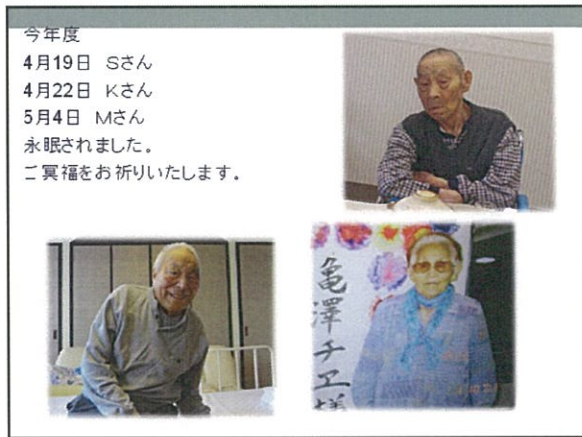 今年度
4月19日 Sさん
4月22日 Kさん
5月4日 Mさん
永眠されました。
ご冥福をお祈りいたします。
亀澤チヱ様